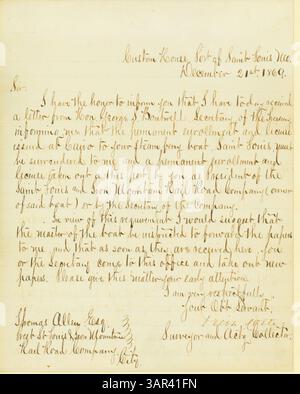 Custom House, Port of Saint Louis Mo.
December 21st 1869.
Sir
I have the honor to inform you that I have today received
a letter from Hon George S Boutwell Secretary of the Treasury
informing me that the permanent enrollment and license
issued at Cairo to your steam ferry boat, Saint Louis must
be surrendered to me and a permanent enrollment and
license taken out at this port by you as President of the
Saint Louis and Iron Mountain Rail Road Company (owner
of said boat) or by the Secretary of the Company.
In view of this requirement I would suggest that
the master of the boat be instructed to forward the papers
to me and that as soon as they are received here you
or the Secretary come to this office and take out new
papers. Please give this matter your early attention
I am very respectfully
Your Obt Servant.
Surveyor and Actg Collector
Thomas Allen Esq.
Prest St Louis & Iron Mountain
Rail Road Company
City.
alamy
2AR41FN